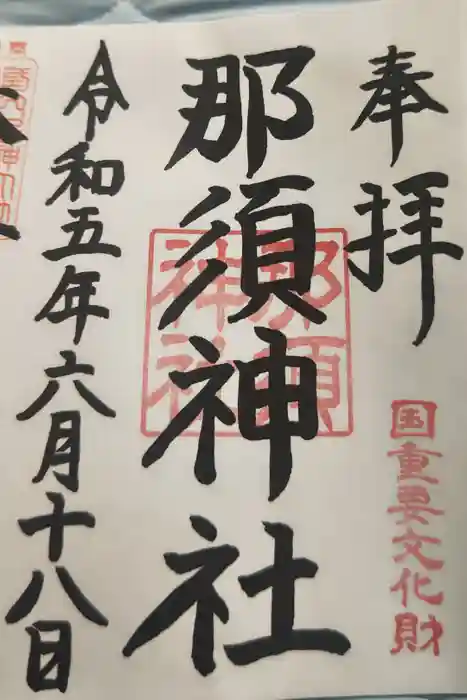 奉拝
国重要文化財
那須神社
那須
神社
令和五年六月十八日